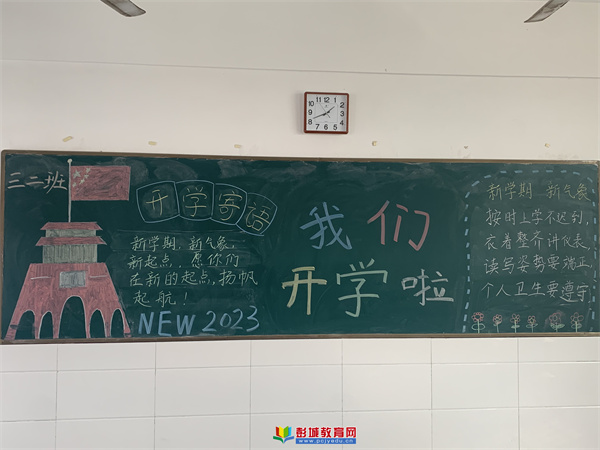 三二班
开学寄语
新学期、新气象,
新起点、愿你们
在新的起点,扬帆
起航!
NEW 2023
我们
开学啦
新学期 新气象
按时上学不迟到,
衣着整齐讲仪表,
读写姿势要端正,
个人卫生要遵守
彭城教育网
www.pcjyedu.cn